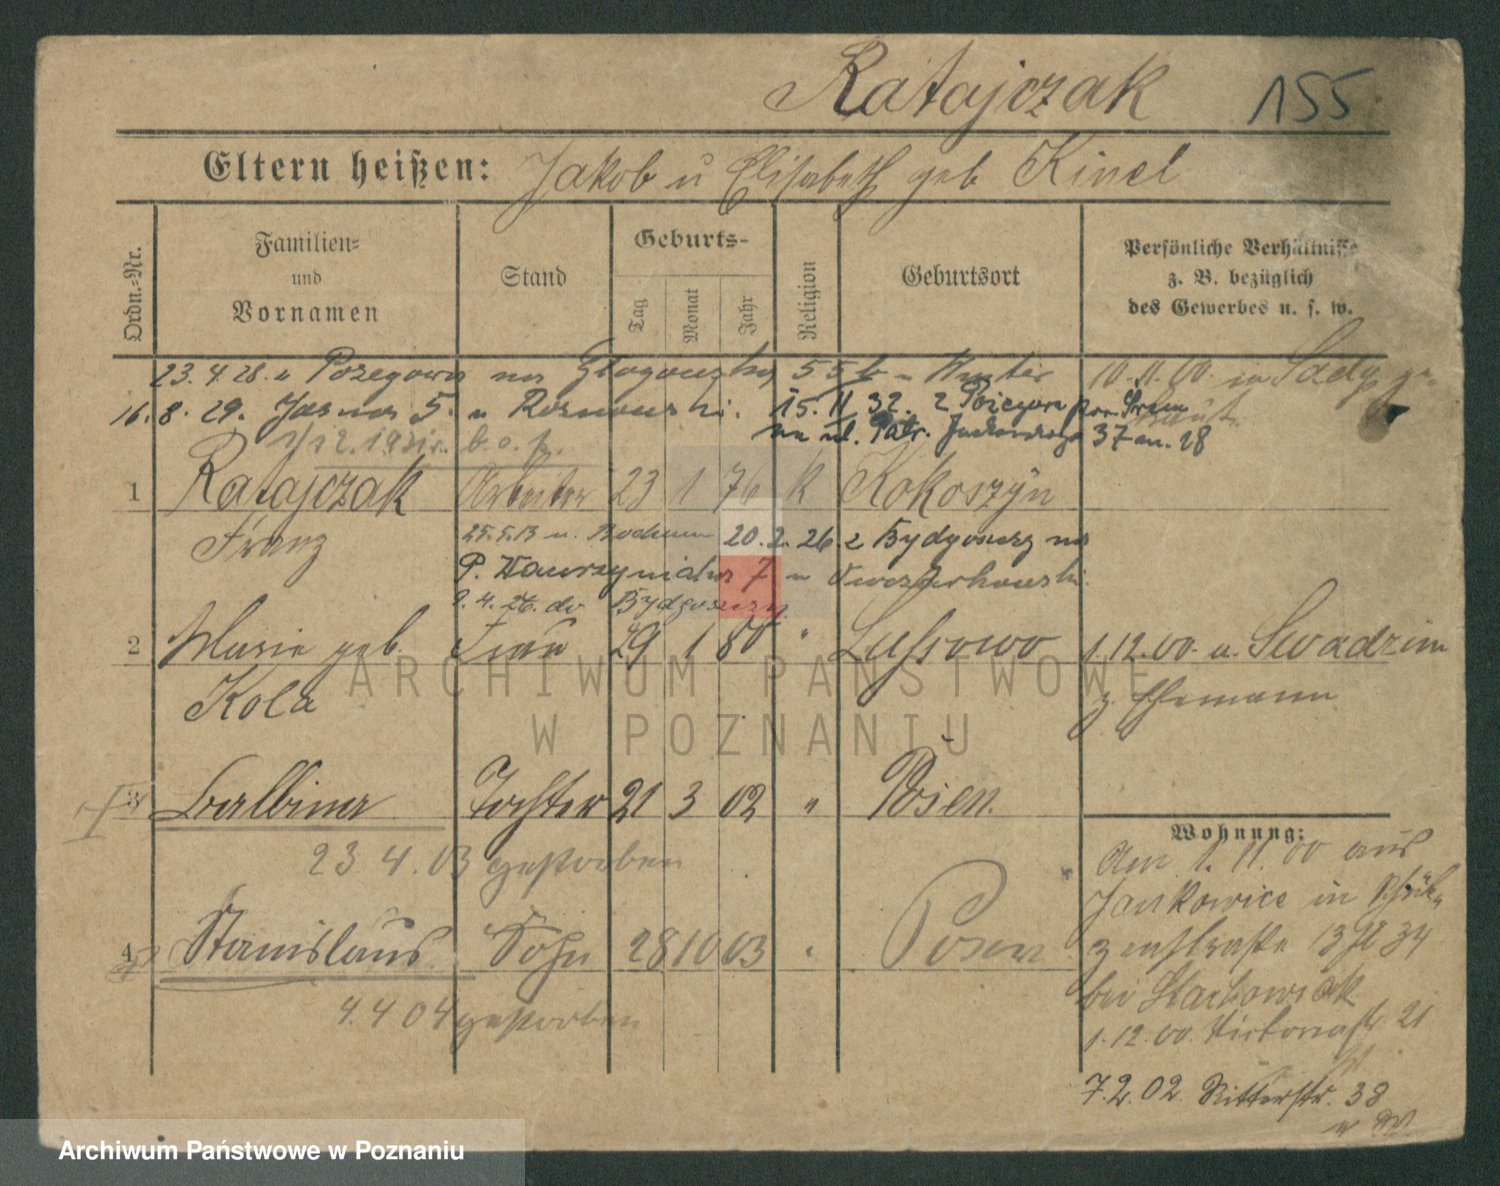 Ratajczak 155
Eltern heißen: Jakob u Elisabeth geb Kinel
Ordn.-Nr.
Familien- und Vornamen
Stand
Geburts-
Tag
Monat
Jahr
Religion
Geburtsort
Persönliche Verhältnisse
z. B. bezüglich
des Gewerbes u. s. w.
23. 4. 28. u Pozegowo na 55 b - 10. 11. 00. in
16. 8. 29. Jasna 5. u 15. 11 32. z
na ul. Patr. Jackowskiego 37 28
1 Ratajczak Arbeiter 23 1 76 K Kokoszyn
Franz 25. 5. 13 n. Bochum 20. 2. 26 z Bydgoszcz na
P. Wawrzyniaka 7 u
9. 4. 26. do Bydgoszczy.
2 Marie geb. Frau 29 1 80 " Lussowo 1. 12. 00. u. Swadzim
Kola z Ehemann
3 Balbina Tochter 21 3 02 " Posen.
23. 4. 03 gestorben
Wohnung:
Am 1. 11. 00 aus
Jankowice in
4 Stanislaus Sohn 28 10 03 " Posen
4. 4 04 gestorben
bei
1. 12. 00. Viktoriastr 21
7. 2. 02. Ritterstr. 38
ARCHIWUM PAŃSTWOWE
W POZNANIU
Archiwum Państwowe w Poznaniu